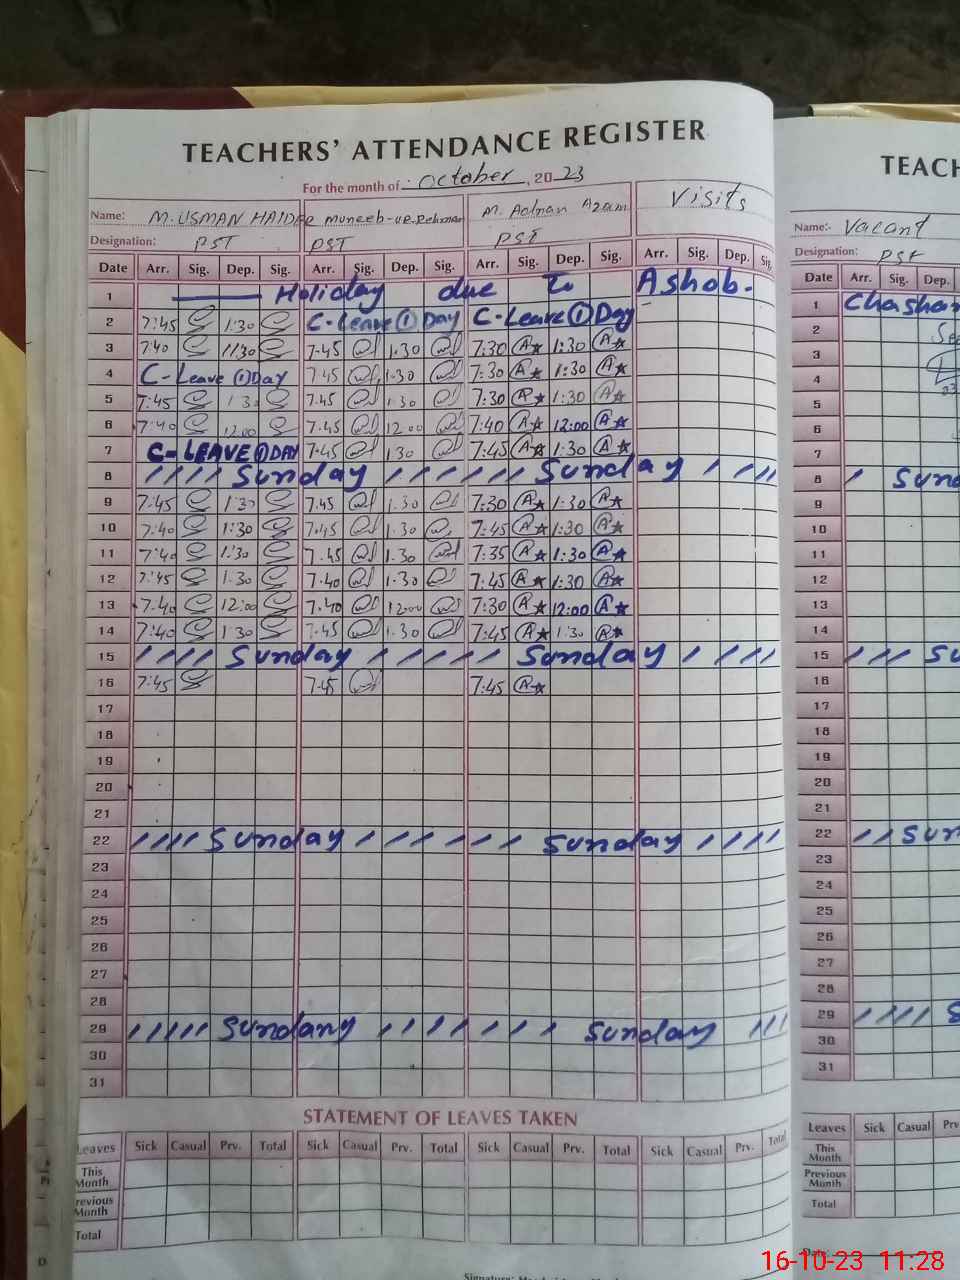 TEACHERS' ATTENDANCE REGISTER
For the month of October, 20 23
Name: M. USMAN HAIDER Muneeb-ur-Rehman M. Adnan Azam Visits
Designation: PST PST PST
Date Arr. Sig. Dep. Sig. Arr. Sig. Dep. Sig. Arr. Sig. Dep. Sig. Arr. Sig. Dep. Sig.
1 Holiday due to Ashob.
2 7:45 1:30 C-Leave (1) Day C-Leave (1) Day
3 7:40 1:30 7.45 1.30 7:30 1:30
4 C-Leave (1) Day 7.45 1.30 7:30 1:30
5 7:45 1:30 7.45 1.30 7:30 1:30
6 7:40 12:00 7.45 12 00 7:40 12:00
7 C-LEAVE (1) DAY 7.45 1.30 7:45 1:30
8 Sunday Sunday
9 7:45 1:30 7.45 1.30 7:30 1:30
10 7:40 1:30 7.45 1.30 7:45 1:30
11 7:40 1:30 7.45 1.30 7:35 1:30
12 7:45 1:30 7.40 1.30 7:45 1:30
13 7:40 12:00 7.40 12:00 7:30 12:00
14 7:40 1:30 7.45 1.30 7:45 1:30
15 Sunday Sunday
16 7:45 7.45 7:45
17
18
19
20
21
22 Sunday Sunday
23
24
25
26
27
28
29 Sundany Sunday
30
31
STATEMENT OF LEAVES TAKEN
Leaves Sick Casual Prv. Total Sick Casual Prv. Total Sick Casual Prv. Total Sick Casual Prv. Total
This Month
Previous Month
Total
TEACH
Name:- Vacant
Designation: PST
Date Arr. Sig. Dep.
1 Chashan
2
3
4
5
6
7
8 Sund
9
10
11
12
13
14
15 Su
16
17
18
19
20
21
22 Sun
23
24
25
26
27
28
29 S
30
31
Leaves Sick Casual Prv
This Month
Previous Month
Total
Date:
16-10-23 11:28